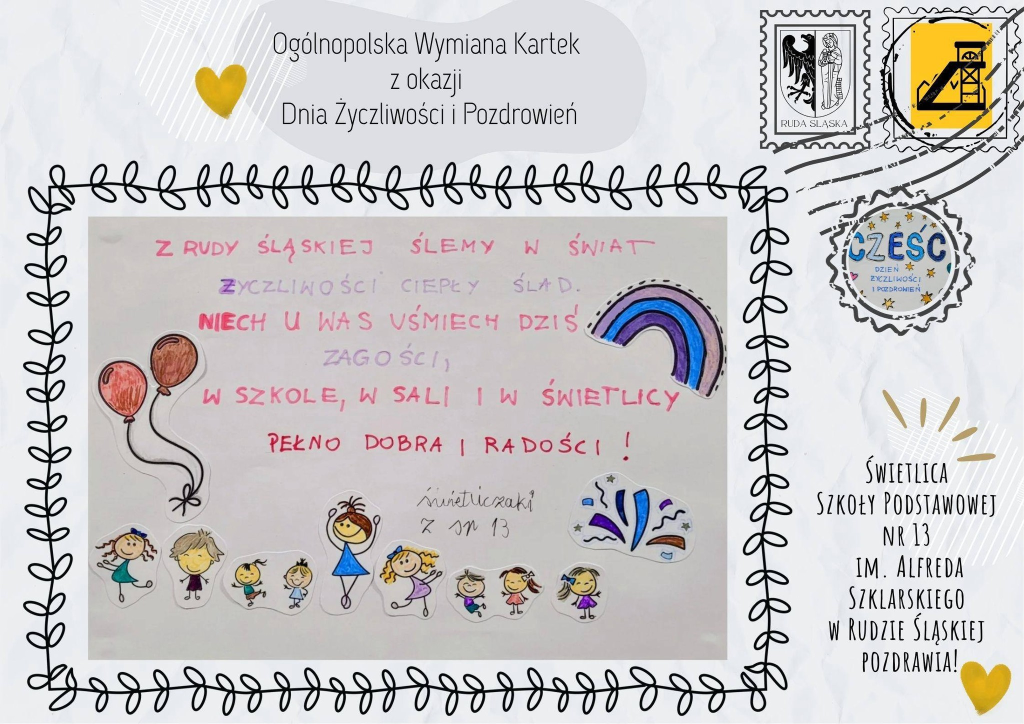 Ogólnopolska Wymiana Kartek
z okazji
Dnia Życzliwości i Pozdrowień
RUDA ŚLĄSKA
Z RUDY ŚLĄSKIEJ ŚLEMY W ŚWIAT
ŻYCZLIWOŚCI CIEPŁY ŚLAD.
NIECH U WAS UŚMIECH DZIŚ
ZAGOŚCI,
W SZKOLE, W SALI I W ŚWIETLICY
PEŁNO DOBRA I RADOŚCI!
świetliczaki
z sp 13
CZEŚĆ
DZIEŃ
ŻYCZLIWOŚCI
I POZDROWIEŃ
Świetlica
Szkoły Podstawowej
nr 13
im. Alfreda
Szklarskiego
w Rudzie Śląskiej
pozdrawia!